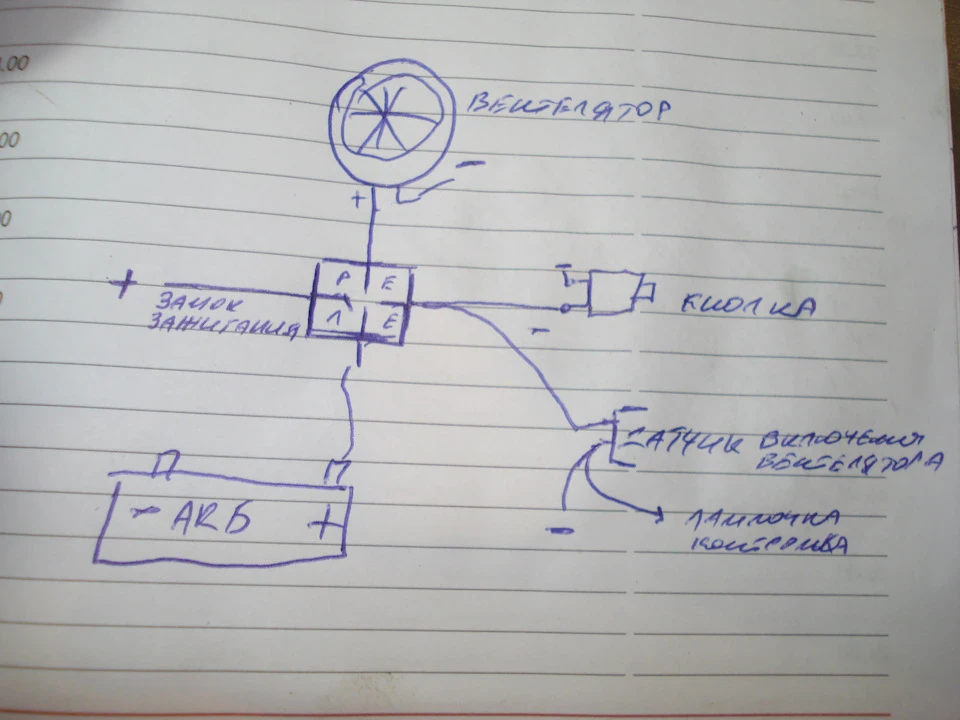 .00
00
0
ВЕНТЕЛЯТОР
-
+
Р Е
Л Е
+
ЗАМОК
ЗАЖИГАНИЯ
-
КНОПКА
-
ДАТЧИК ВКЛЮЧЕНИЯ
ВЕНТЕЛЯТОРА
-
ЛАМПОЧКА
КОНТРОЛЬКА
- АКБ +